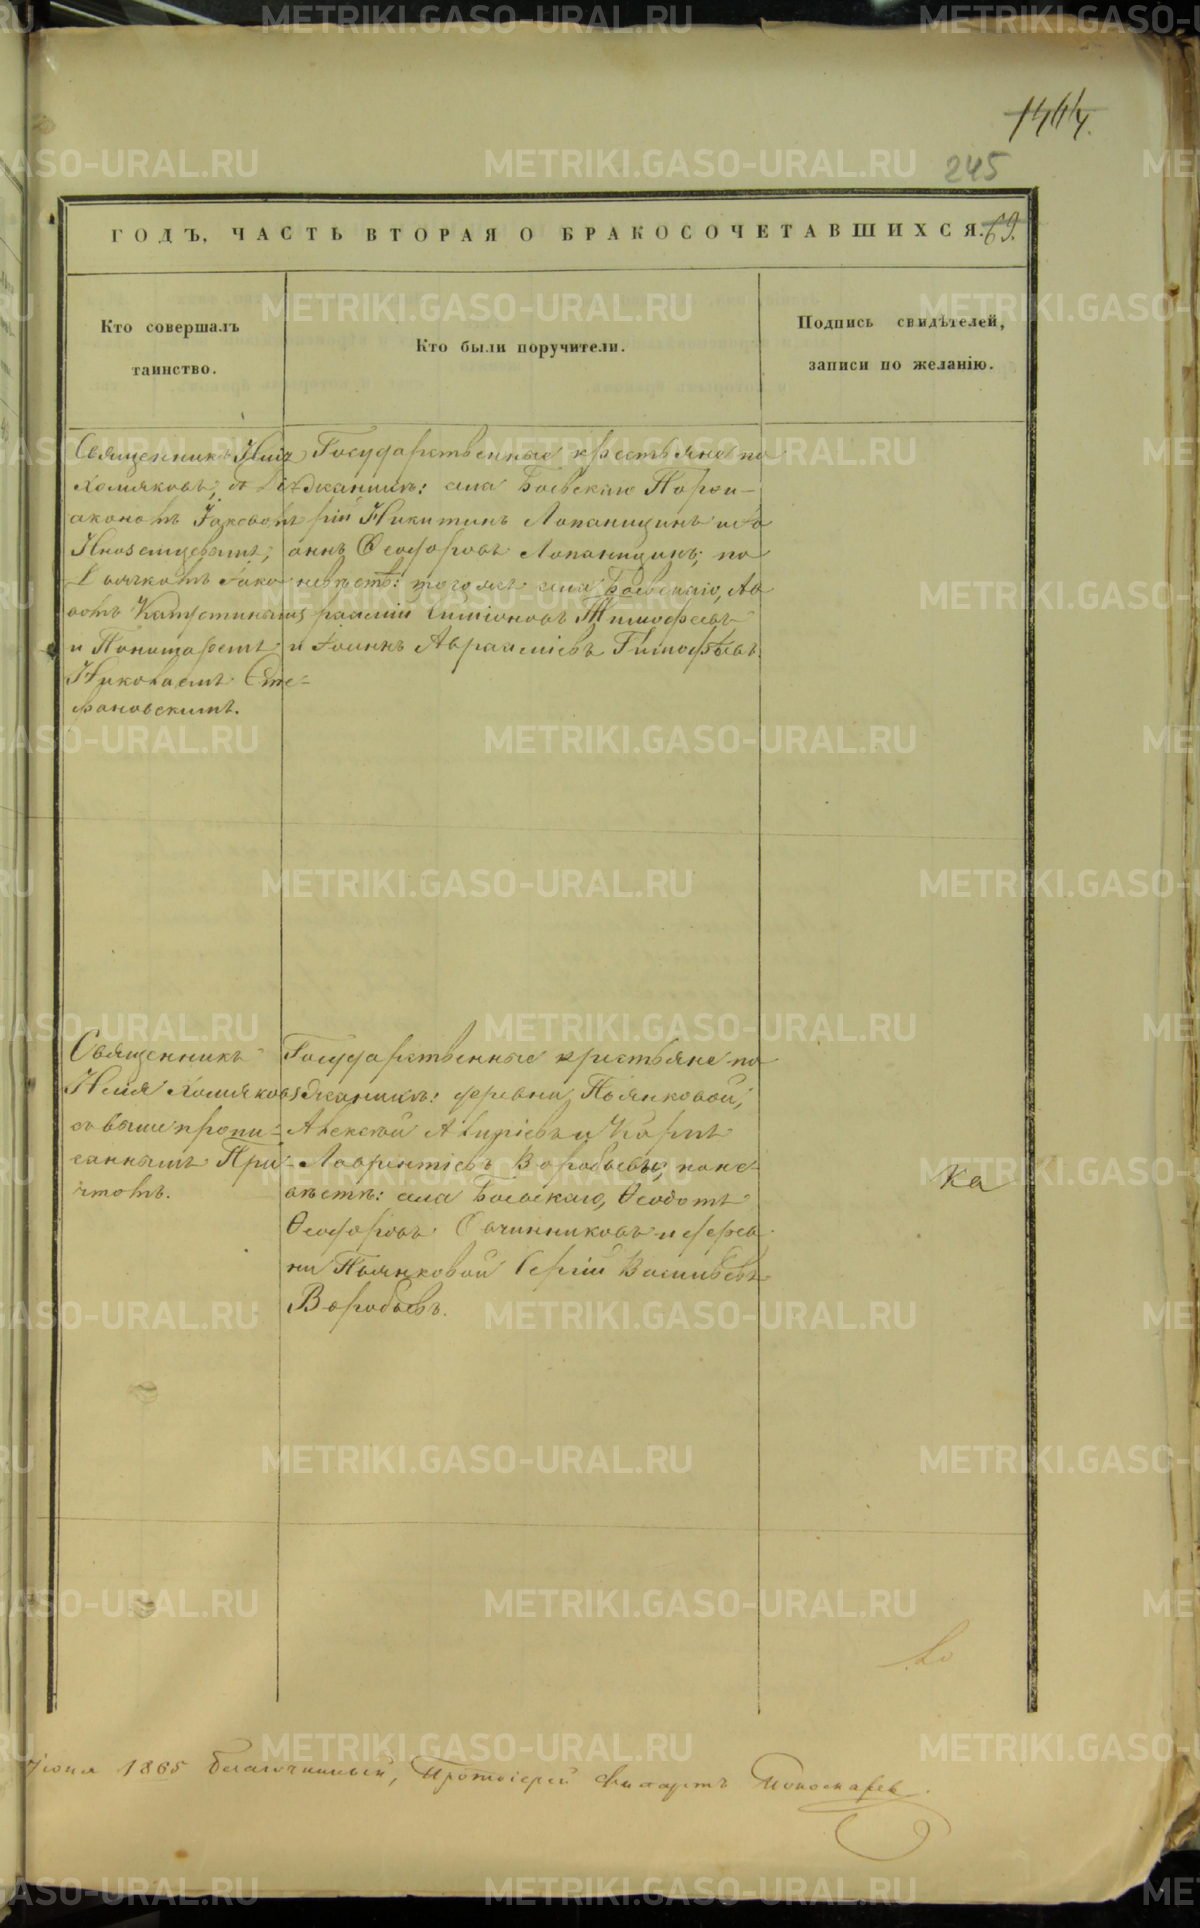 1444.
245
ГОДЪ, ЧАСТЬ ВТОРАЯ О БРАКОСОЧЕТАВШИХСЯ. 69.
Кто совершалъ
таинство.
Кто были поручители.
Подпись свидѣтелей,
записи по желанію.
Священникъ Илія
Холмяковъ, съ Ді-
акономъ Іаковомъ
Иноземцевымъ,
Дьячкомъ Іако-
вомъ Капустинымъ
и Пономаремъ
Николаемъ Сте-
фановскимъ.
Государственные крестьяне по
женихѣ: села Боевскаго Порфи-
рій Никитинъ Лопаницинъ и Іо
аннъ Ѳеодоровъ Лопаницинъ; по
невѣстѣ: того же села Боевскаго, Ав
раамій Симіоновъ Тимофеевъ
и Іоаннъ Авраамієвъ Тимофѣевъ.
Священникъ
Илія Холмяковъ
съ вышепропи-
саннымъ При-
чтомъ.
Государственные крестьяне по
женихѣ: деревни Пьянковой,
Алексѣй и Карпъ
Лаврентіевъ Воробьевы; по не-
вѣстѣ: села Боевскаго, Ѳеодотъ
Ѳеодоровъ Овчинниковъ и дерев
ни Пьянковой Сергій Васильевъ
Воробьевъ.
ка
Іюня 1865 Благочинный, Протоіерей